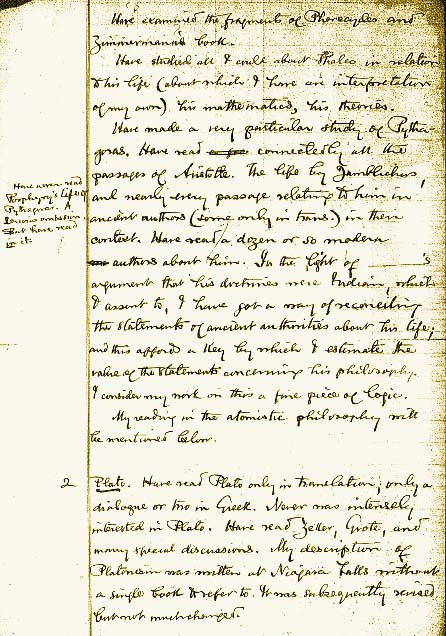 Have examined the fragments of Pherecydes and
Zimmermann's book.
Have studied all I could about Thales in relation
to his life (about which I have an interpretation
of my own), his mathematics, his theories.
Have made a very particular study of Pytha-
goras. Have read connectedly all the
passages of Aristotle. The life by Jamblichus,
and nearly every passage relating to him in
ancient authors (some only in trans.) in their
context. Have read a dozen or so modern
authors about him. In the light of 's
argument that his doctrines were Indian, which
I assent to, I have got a way of reconciling
the statements of ancient authorities about his life;
and this affords a key by which I estimate the
value of the statements concerning his philosophy.
I consider my work on this a fine piece of logic.
My reading in the atomistic philosophy will
be mentioned below.
Have never read
Porphyry's Life of
Pythagoras. A
serious omission
But have read
in it.
2 Plato. Have read Plato only in translation; only a
dialogue or two in Greek. Never was intensely
interested in Plato. Have read Zeller, Grote, and
many special discussions. My description of
Platonism was written at Niagara Falls without
a single book to refer to. It was subsequently revised
but not much changed.